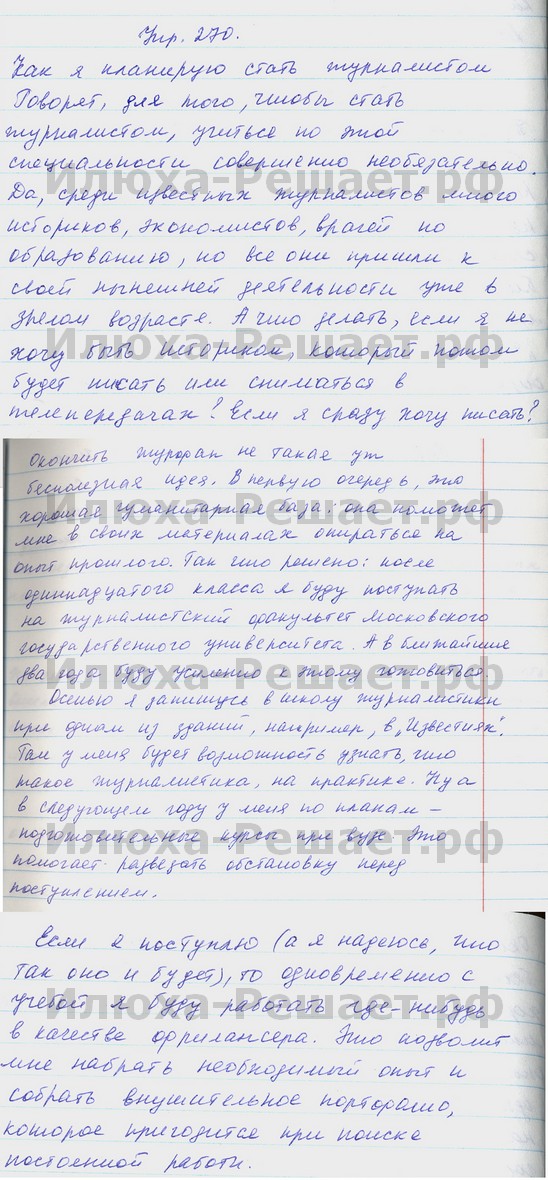 Упр. 270.
Как я планирую стать журналистом
Говорят, для того, чтобы стать
журналистом, учиться по этой
специальности совершенно необязательно.
Илюха-Решает.рф
Да, среди известных журналистов много
историков, экономистов, врачей по
образованию, но все они пришли к
своей нынешней деятельности уже в
зрелом возрасте. А что делать, если я не
Илюха-Решает.рф
хочу быть историком, который потом
будет писать или сниматься в
телепередачах? Если я сразу хочу писать?
Окончить журфак не такая уж
бесполезная идея. В первую очередь, это
Илюха-Решает.рф
хорошая гуманитарная база: она поможет
мне в своих материалах опираться на
опыт прошлого. Так что решено: после
одиннадцатого класса я буду поступать
на журналистский факультет Московского
государственного университета. А в ближайшие
Илюха-Решает.рф
два года буду усиленно к этому готовиться.
Осенью я запишусь в школу журналистики
при одном из зданий, например, в „Известиях".
Там у меня будет возможность узнать, что
такое журналистика, на практике. Ну а
в следующем году у меня по планам –
Илюха-Решает.рф
подготовительные курсы при вузе. Это
помогает разведать обстановку перед
поступлением.
Если я поступлю (а я надеюсь, что
так оно и будет), то одновременно с
Илюха-Решает.рф
учебой я буду работать где-нибудь
в качестве фрилансера. Это позволит
мне набрать необходимый опыт и
собрать внушительное портфолио,
которое пригодится при поиске
постоянной работы.